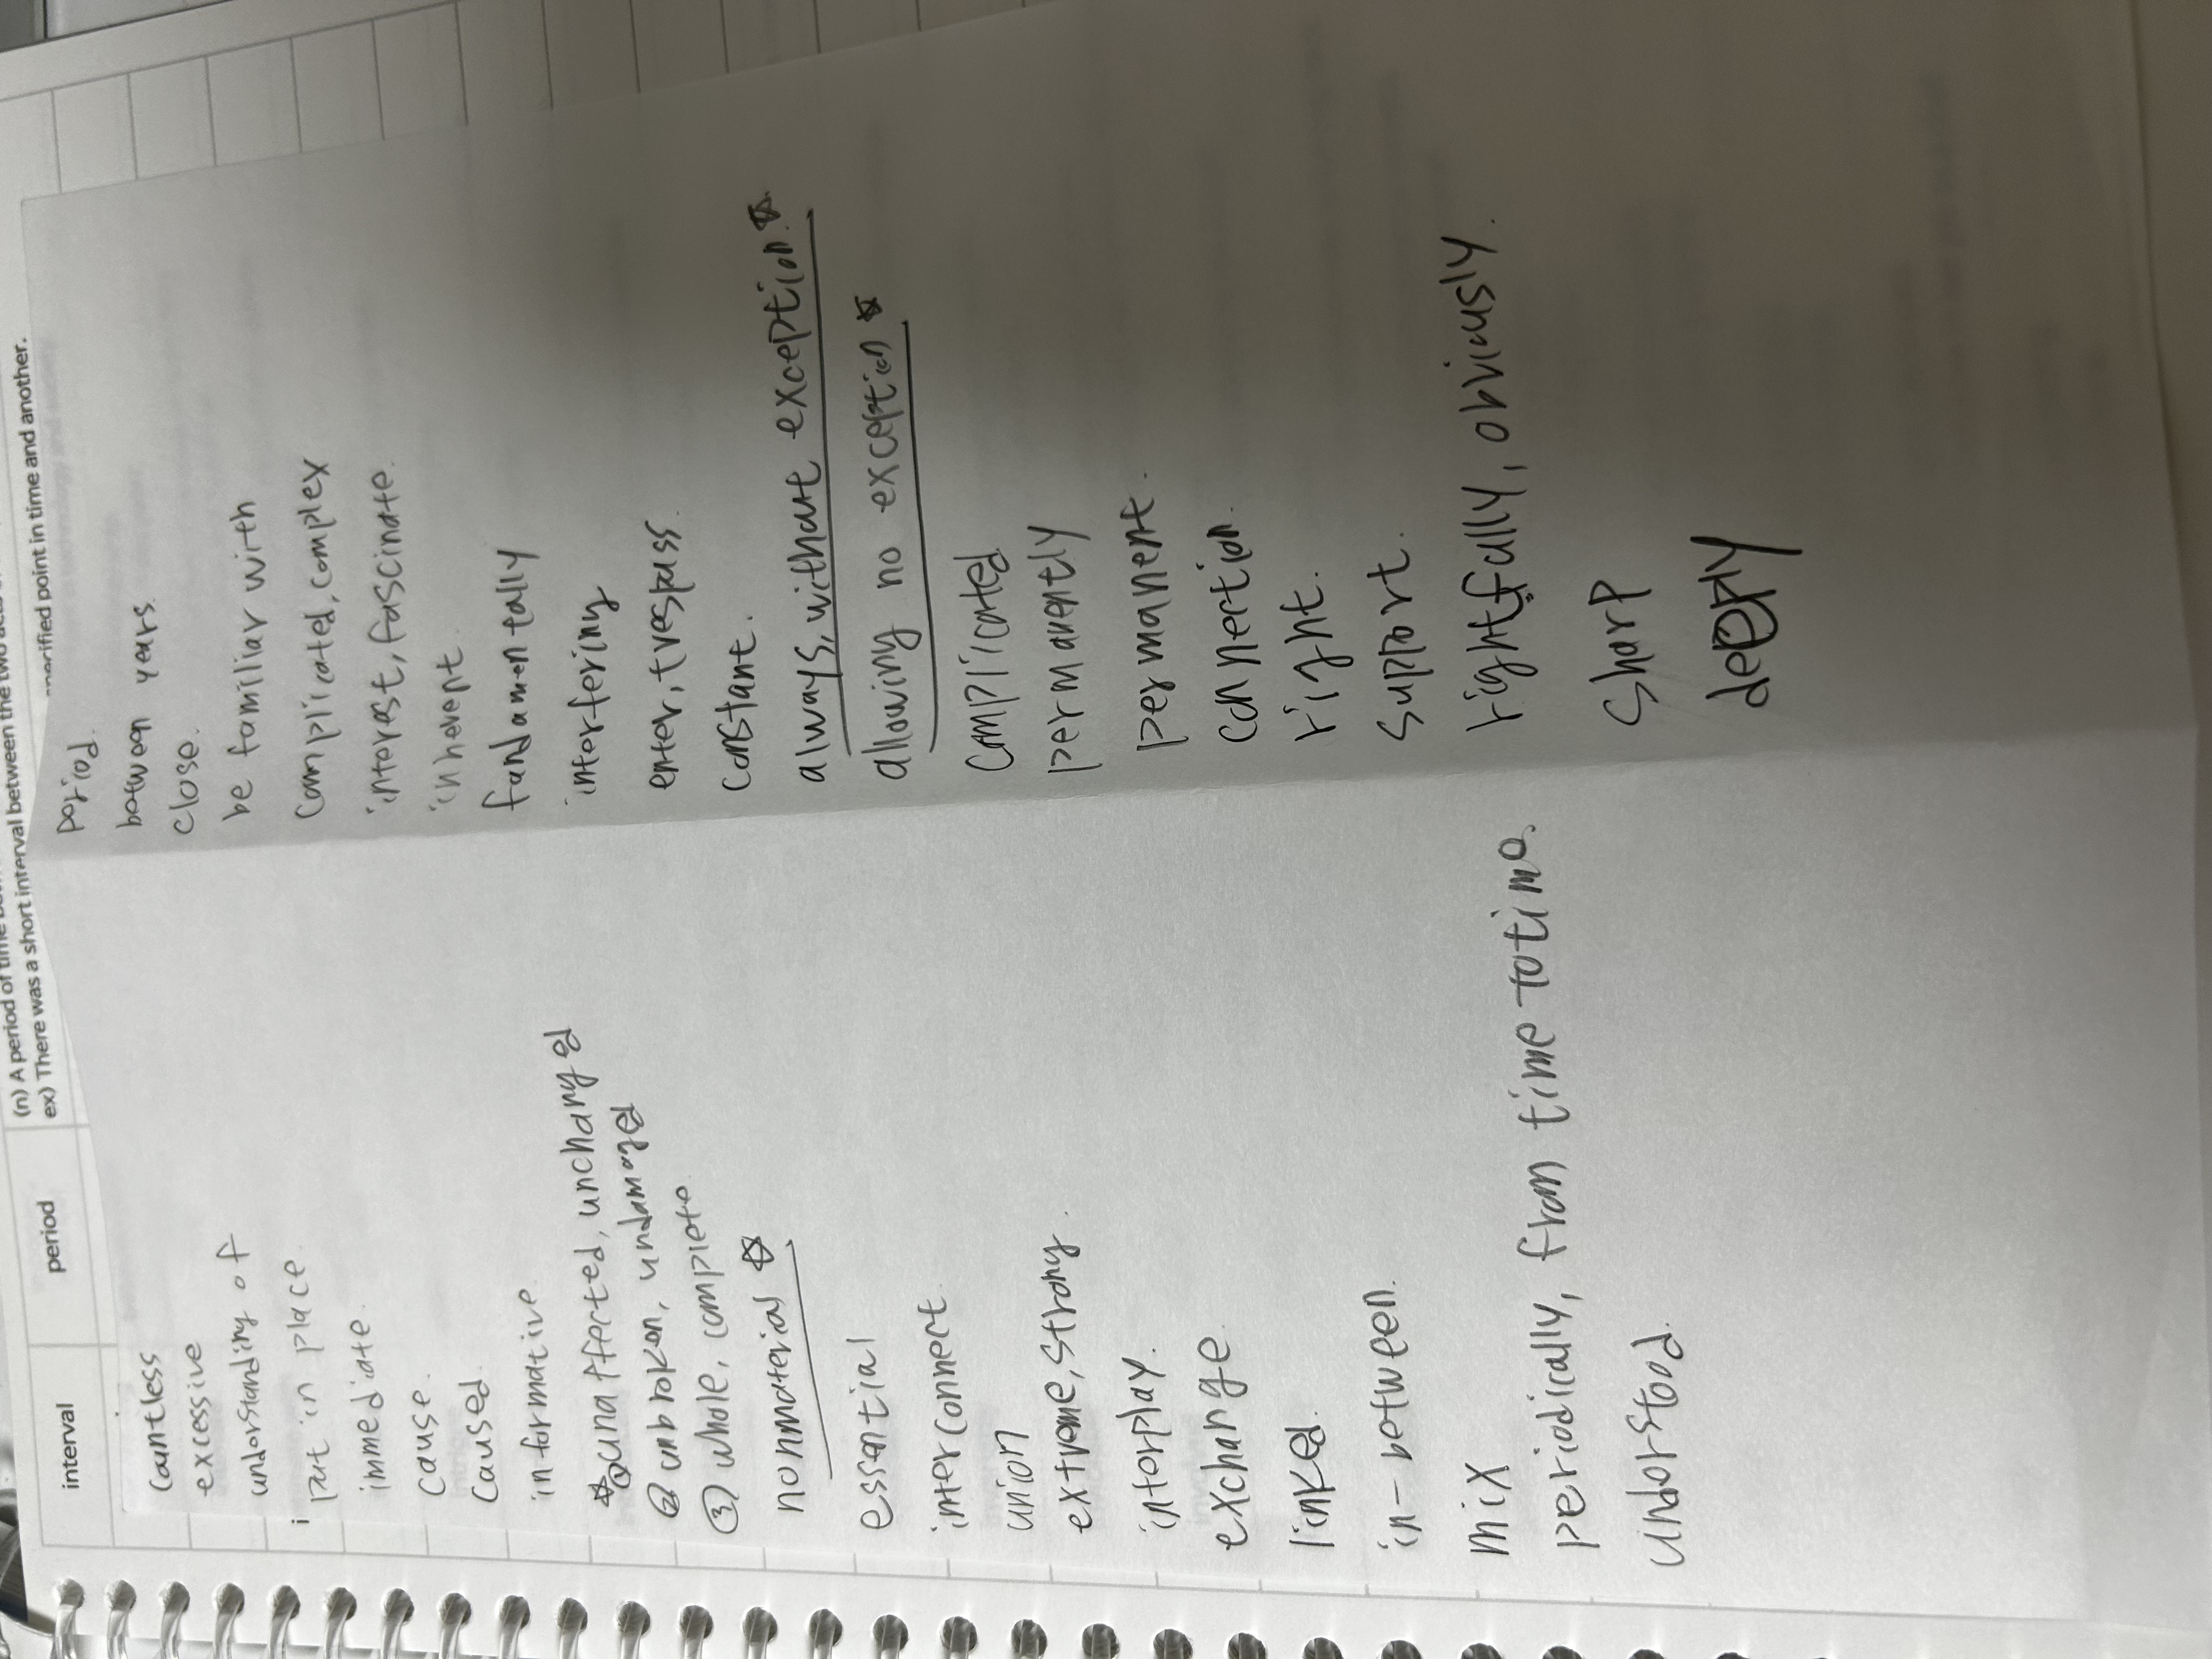 (n) A period of time
ex) There was a short interval between the two
specified point in time and another.
interval
period
countless
excessive
understanding of
put in place
immediate.
cause.
caused
informative
☆① unaffected, unchanged
② unbroken, undamaged
③ whole, complete
nonmaterial ☆
essential
interconnect
union
extreme, strong.
interplay.
exchange
linked.
in-between.
mix
periodically, from time to time.
understood.
period.
between years.
close.
be familiar with
complicated, complex
interest, fascinate.
inherent
fundamentally
interfering
enter, trespass.
constant.
always, without exception. ☆
allowing no exception ☆
complicated
permanently
permanent.
connection.
right.
support.
rightfully, obviously.
sharp
deeply